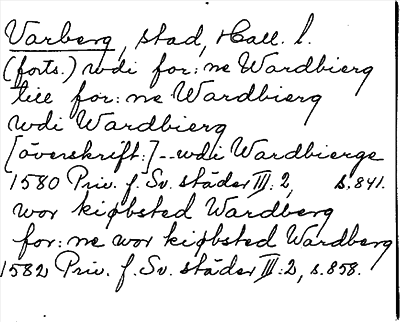 Varberg, stad, Hall. l.
(forts.) wdi for: ne Wardbierg
till for: ne Wardbierg
wdi Wardbierg
[överskrift:] -- wdi Wardbierge
1580 Priv. f. Sv. städer III: 2, s. 841.
wor kiøbsted Wardberg
for: ne wor kiøbsted Wardberg
1582 Priv. f. Sv. städer III: 2, s. 858.